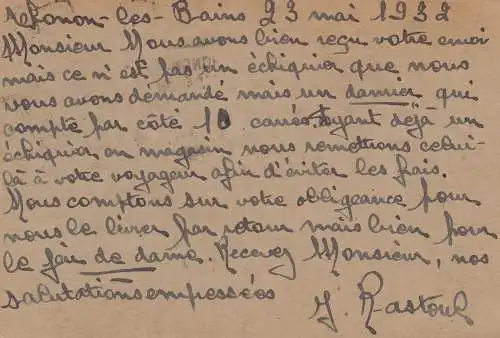 Thonon-les-Bains 23 mai 1932
Monsieur Nous avons bien reçu votre envoi
mais ce n'est pas un échiquier que nous
vous avons demandé mais un damier qui
compte par côté 10 carrés. Ayant déjà un
échiquier en magasin nous remettrons celui-
là à votre voyageur afin d'éviter les frais.
Nous comptons sur votre obligeance pour
nous le livrer par retour mais bien pour
le jeu de dame. Recevez Monsieur, nos
salutations empressées
J. Rastoul